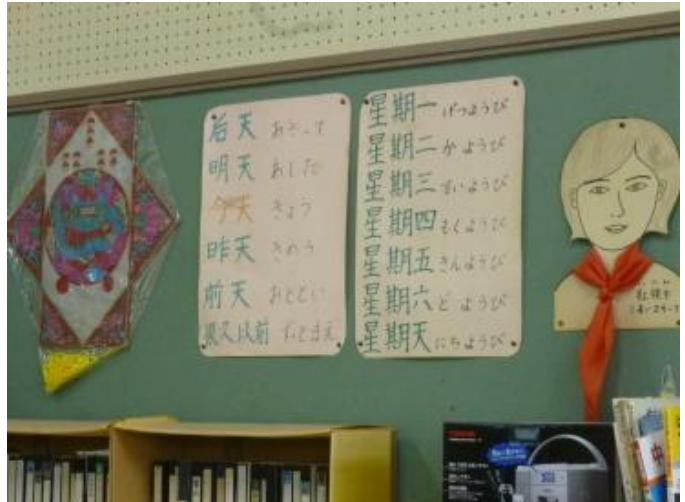 后天 あさって
明天 あした
今天 きょう
昨天 きのう
前天 おととい
很久以前 ずっとまえ
星期一 げつようび
星期二 かようび
星期三 すいようび
星期四 もくようび
星期五 きんようび
星期六 どようび
星期天 にちようび
红领巾
TOSHIBA